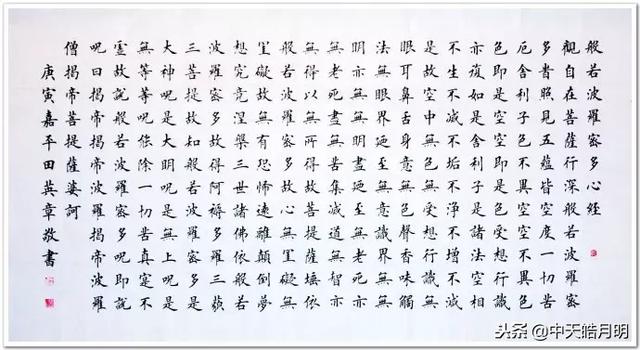 般若波羅蜜多心經
觀自在菩薩行深般若波羅蜜
多旹照見五蘊皆空度一切苦
厄舍利子色不異空空不異色
色即是空空即是色受想行識
亦復如是舍利子是諸法空相
不生不滅不垢不淨不增不減
是故空中無色無受想行識無
眼耳鼻舌身意無色聲香味觸
法無眼界廼至無意識界無無
明亦無無明盡廼至無老死亦
無老死盡無苦集滅道無智亦
無得以無所得故菩提薩埵依
般若波羅蜜多故心無罣礙無
罣礙故無有恐怖遠離顛倒夢
想究竟涅槃三世諸佛依般若
波羅蜜多故得阿耨多羅三藐
三菩提故知般若波羅蜜多是
大神呪是大明呪是無上呪是
無等等呪能除一切苦真實不
虛故說般若波羅蜜多呪即說
呪曰揭帝揭帝波羅揭帝波羅
僧揭帝菩提薩婆訶
庚寅嘉平田英章敬書
头条@中天皓月明